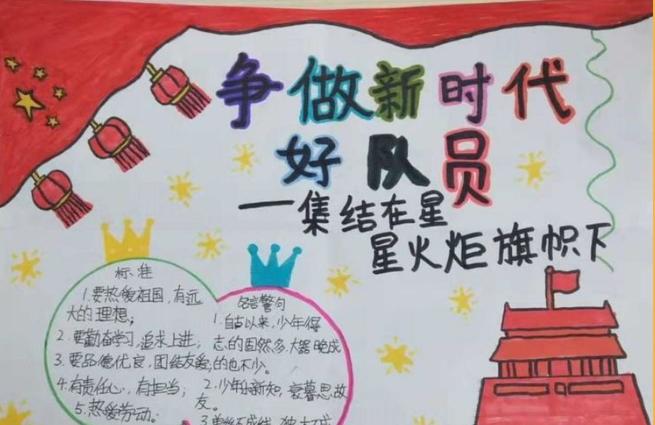 争做新时代
好队员
一集结在星
星火炬旗帜下
标准
1.要热爱祖国,有远
大的理想;
2.要勤奋学习,追求上进;
3.要品德优良,团结友爱;
4.有责任心,有担当;
5.热爱劳动。
名言警句
1.自古以来,少年得
志的固然多,大器晚成
的也不少。
2.少年小新知,衰暮思故
友。
3.单丝不成线,独木不成